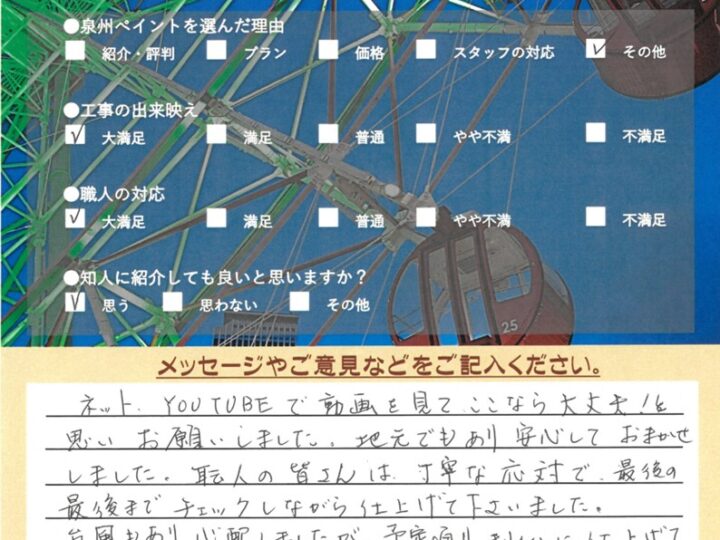 ●泉州ペイントを選んだ理由
紹介・評判 プラン 価格 スタッフの対応 ✓ その他
●工事の出来映え
✓ 大満足 満足 普通 やや不満 不満足
●職人の対応
✓ 大満足 満足 普通 やや不満 不満足
●知人に紹介しても良いと思いますか？
✓ 思う 思わない その他
25
メッセージやご意見などをご記入ください。
ネット、YOUTUBEで動画を見て、ここなら大丈夫！と
思い お願いしました。地元でもあり 安心して おまかせ
しました。職人の皆さんは、丁寧な応対で、最後の
最後まで チェックしながら 仕上げて下さいました。
台風もあり 心配しましたが、予定通り きれいに 仕上げて